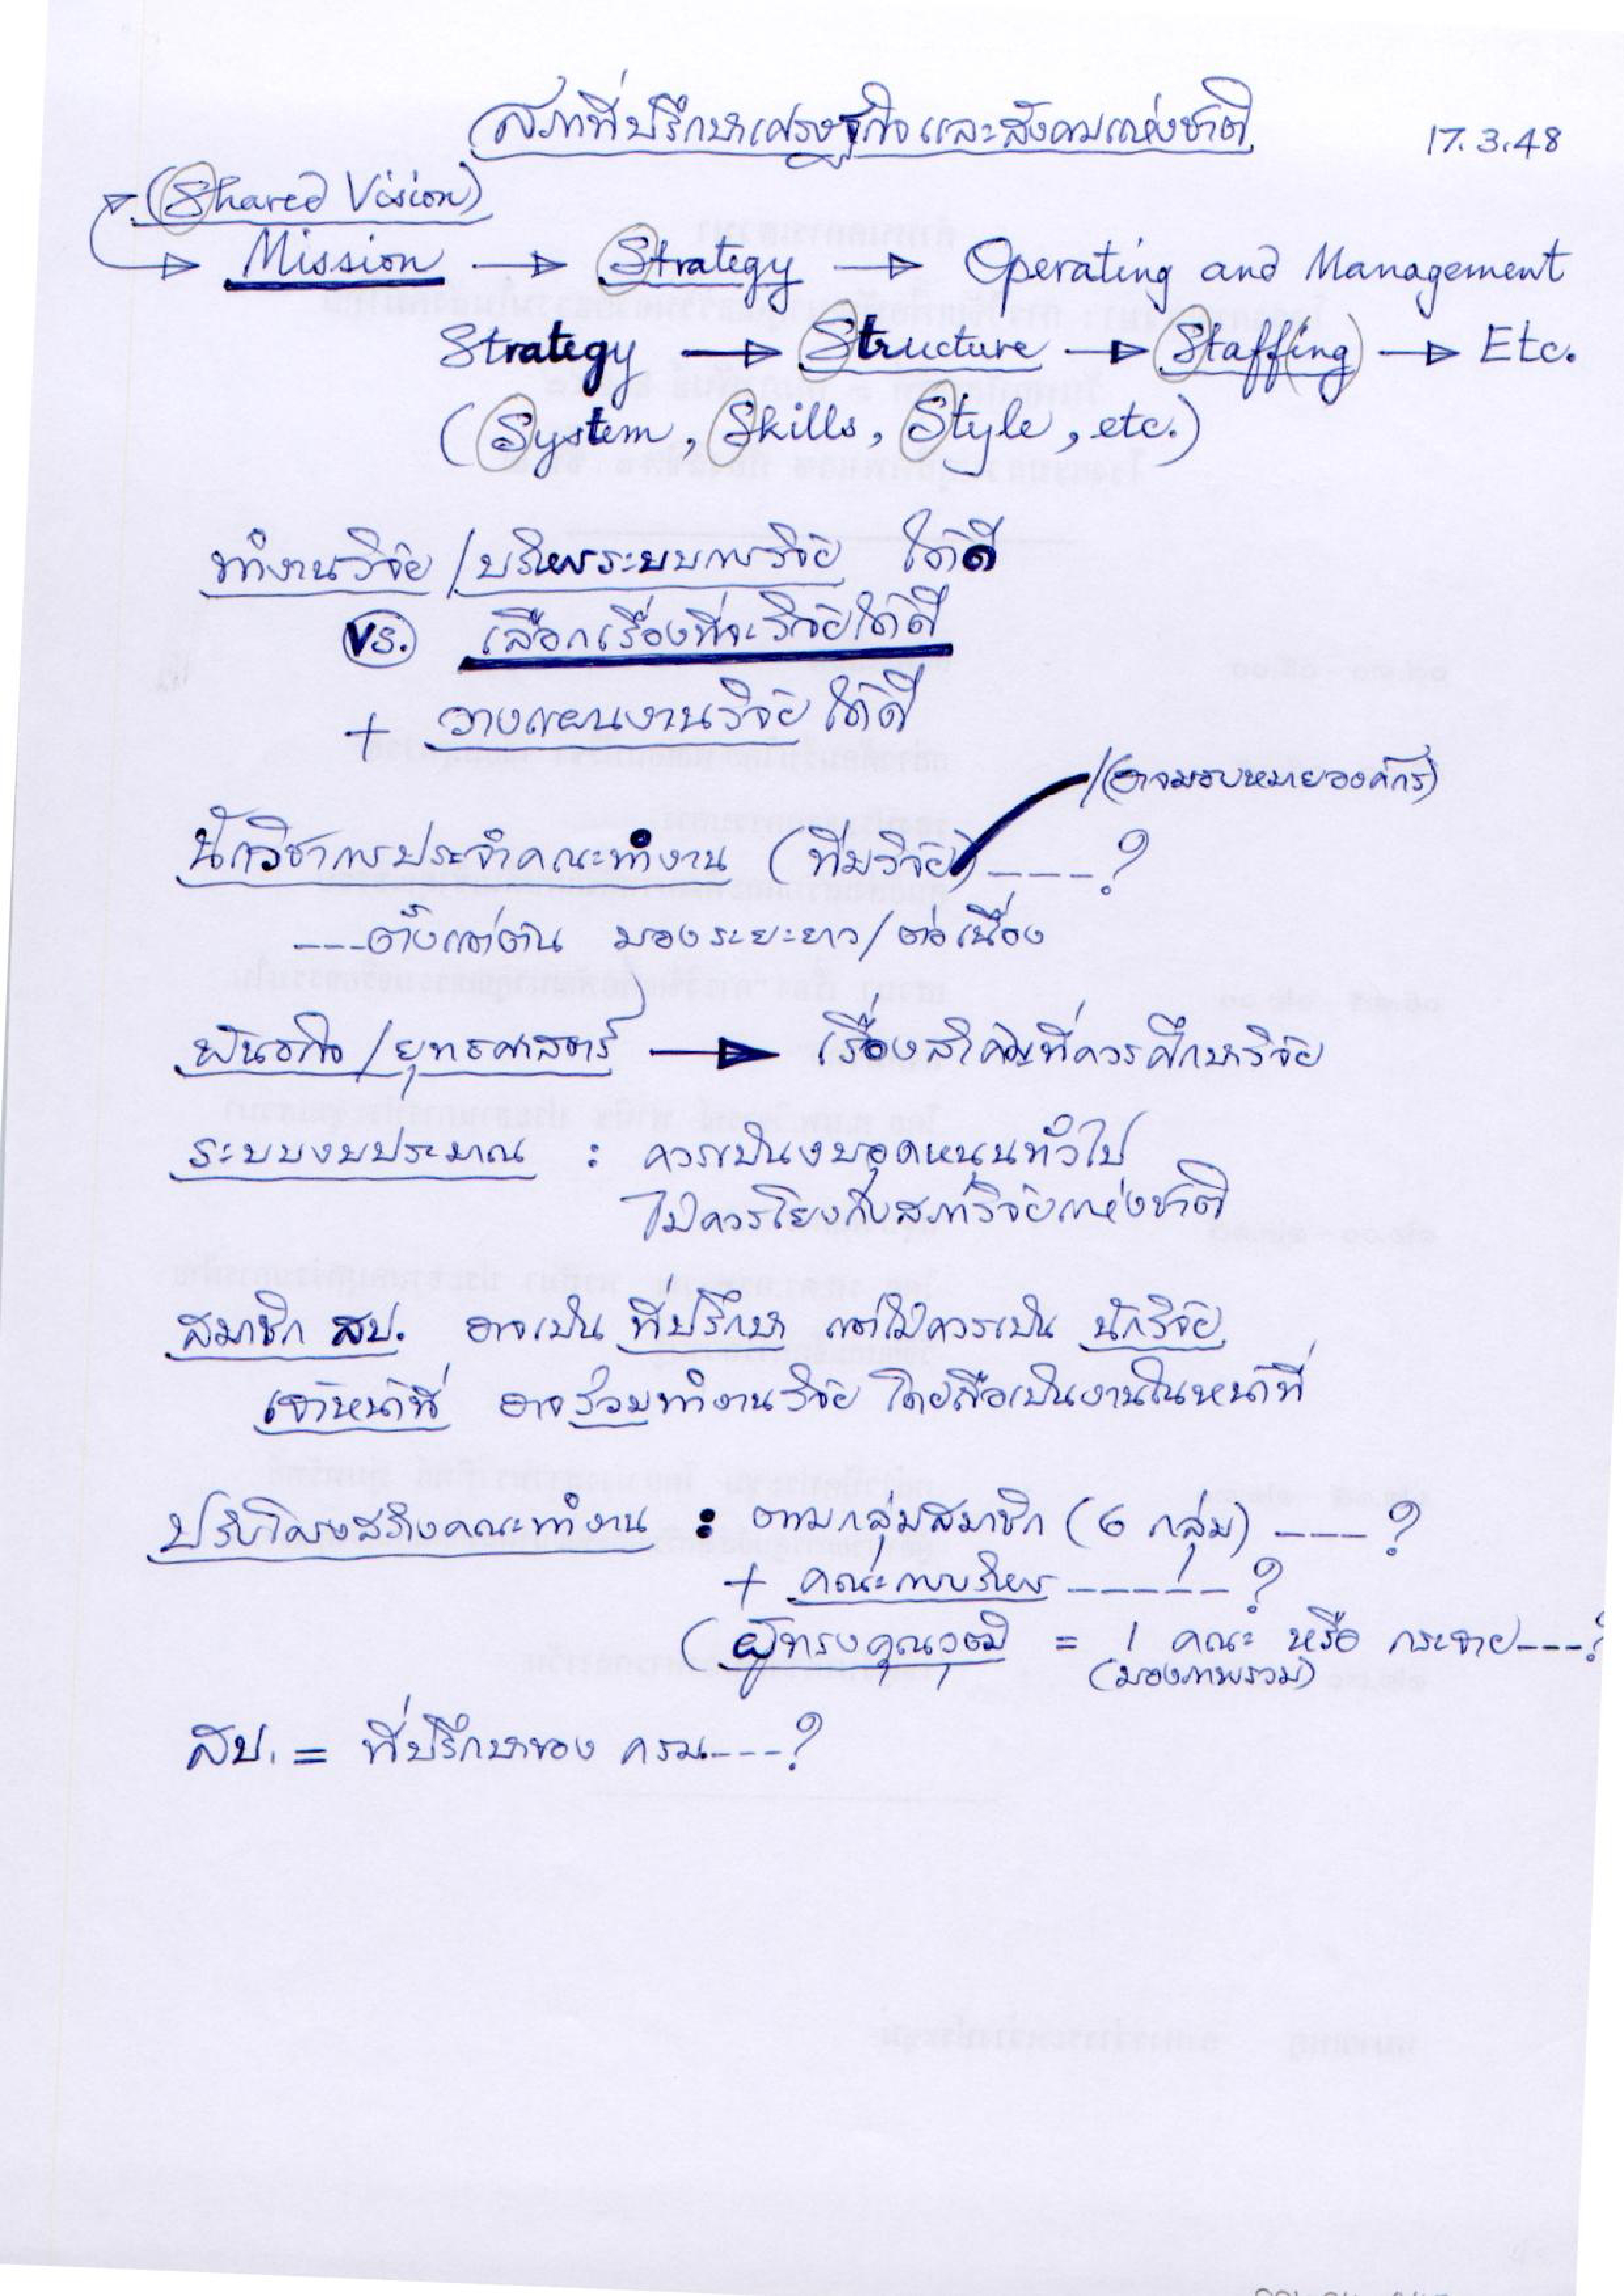 สภาที่ปรึกษาเศรษฐกิจและสังคมแห่งชาติ 17.3.48
(Shared Vision)
Mission → Strategy → Operating and Management
Strategy → Structure → Staff(ing) → Etc.
(System, Skills, Style, etc.)
ทำงานวิจัย / บริหารระบบการวิจัย ได้ดี
vs. เลือกเรื่องที่จะวิจัยได้ดี
+ วางแผนงานวิจัย ได้ดี
(อาจมอบหมายองค์กร)
นักวิชาการประจำคณะทำงาน (ทีมวิจัย) ----?
---ตั้งแต่ต้น มองระยะยาว/ต่อเนื่อง
พันธกิจ / ยุทธศาสตร์ → เรื่องสำคัญที่ควรศึกษาวิจัย
ระบบงบประมาณ : ควรเป็นงบอุดหนุนทั่วไป
ไม่ควรโยงกับสภาวิจัยแห่งชาติ
สมาชิก สป. อาจเป็น ที่ปรึกษา แต่ไม่ควรเป็น นักวิจัย
เจ้าหน้าที่ อาจร่วมทำงานวิจัย โดยถือเป็นงานในหน้าที่
ปรับโครงสร้างคณะทำงาน : ตามกลุ่มสมาชิก (6 กลุ่ม) ---?
+ คณะกบบริหาร -----?
(ผู้ทรงคุณวุฒิ = 1 คณะ หรือ กระจาย---?
(มองภาพรวม)
สป. = ที่ปรึกษาของ ครม.---?